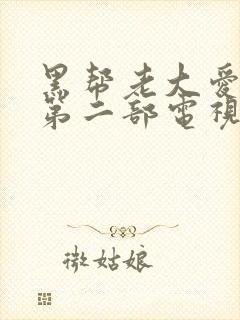 黑帮老大爱
第二部電視
微姑娘